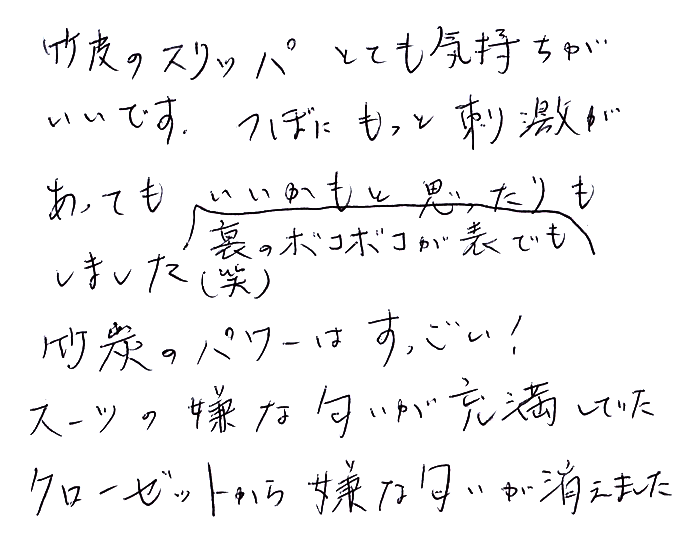 竹皮のスリッパ とても気持ちが
いいです. つぼに もっと 刺激が
あっても いいかもと 思ったりも
裏のボコボコが表でも
しました(笑)
竹炭のパワーは すっごい!
スーツの 嫌な匂いが 充満していた
クローゼットから 嫌な匂いが消えました